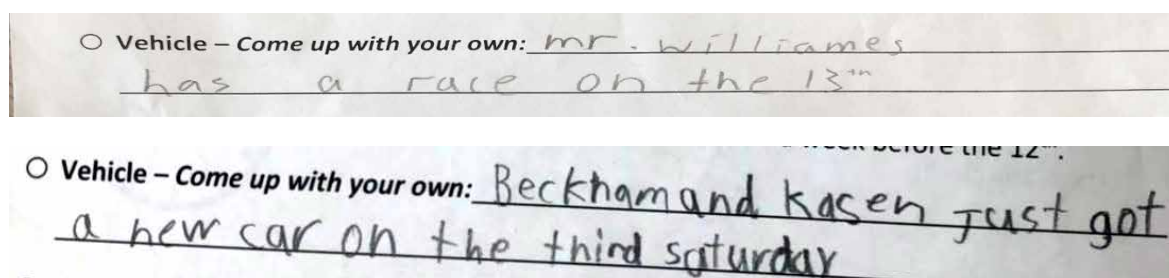 ○ Vehicle – Come up with your own: mr. williames
has a race on the 13th
before the 12th.
○ Vehicle – Come up with your own: Beckham and Kasen Just got
a new car on the third saturday